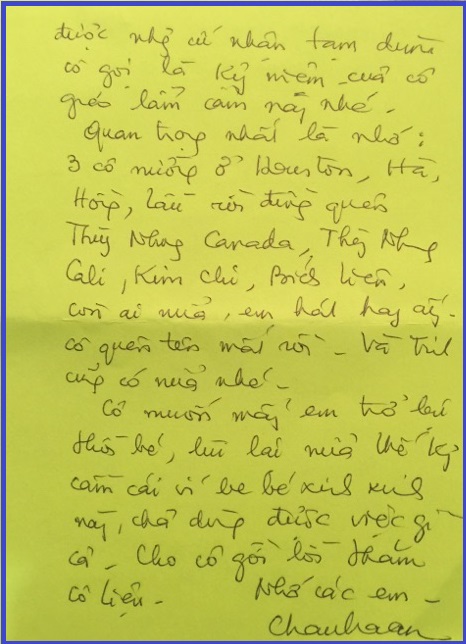 được nhỏ cứ nhân tam dùm
cô gọi là kỷ niệm của cô
giáo lẩm cẩm này nhé.
Quan trọng nhất là nhớ:
3 cô nường ở Houston, Hà,
Hồng, Lâu rồi đừng quên
Thùy Nhung Canada, Thúy Nhung
Cali, Kim Chi, Bích Liên,
còn ai nữa, em hát hay ấy.
cô quên tên mất rồi - Và Tril
cũng có nữa nhé -
Cô muốn mấy em trở lại
thời bé, lùi lại nửa thế kỷ
cầm cái ví be bé xinh xinh
này, chả dùng được việc gì
cả. Cho cô gởi lời thăm
cô Liệu. Nhớ các em -
Chauhaan